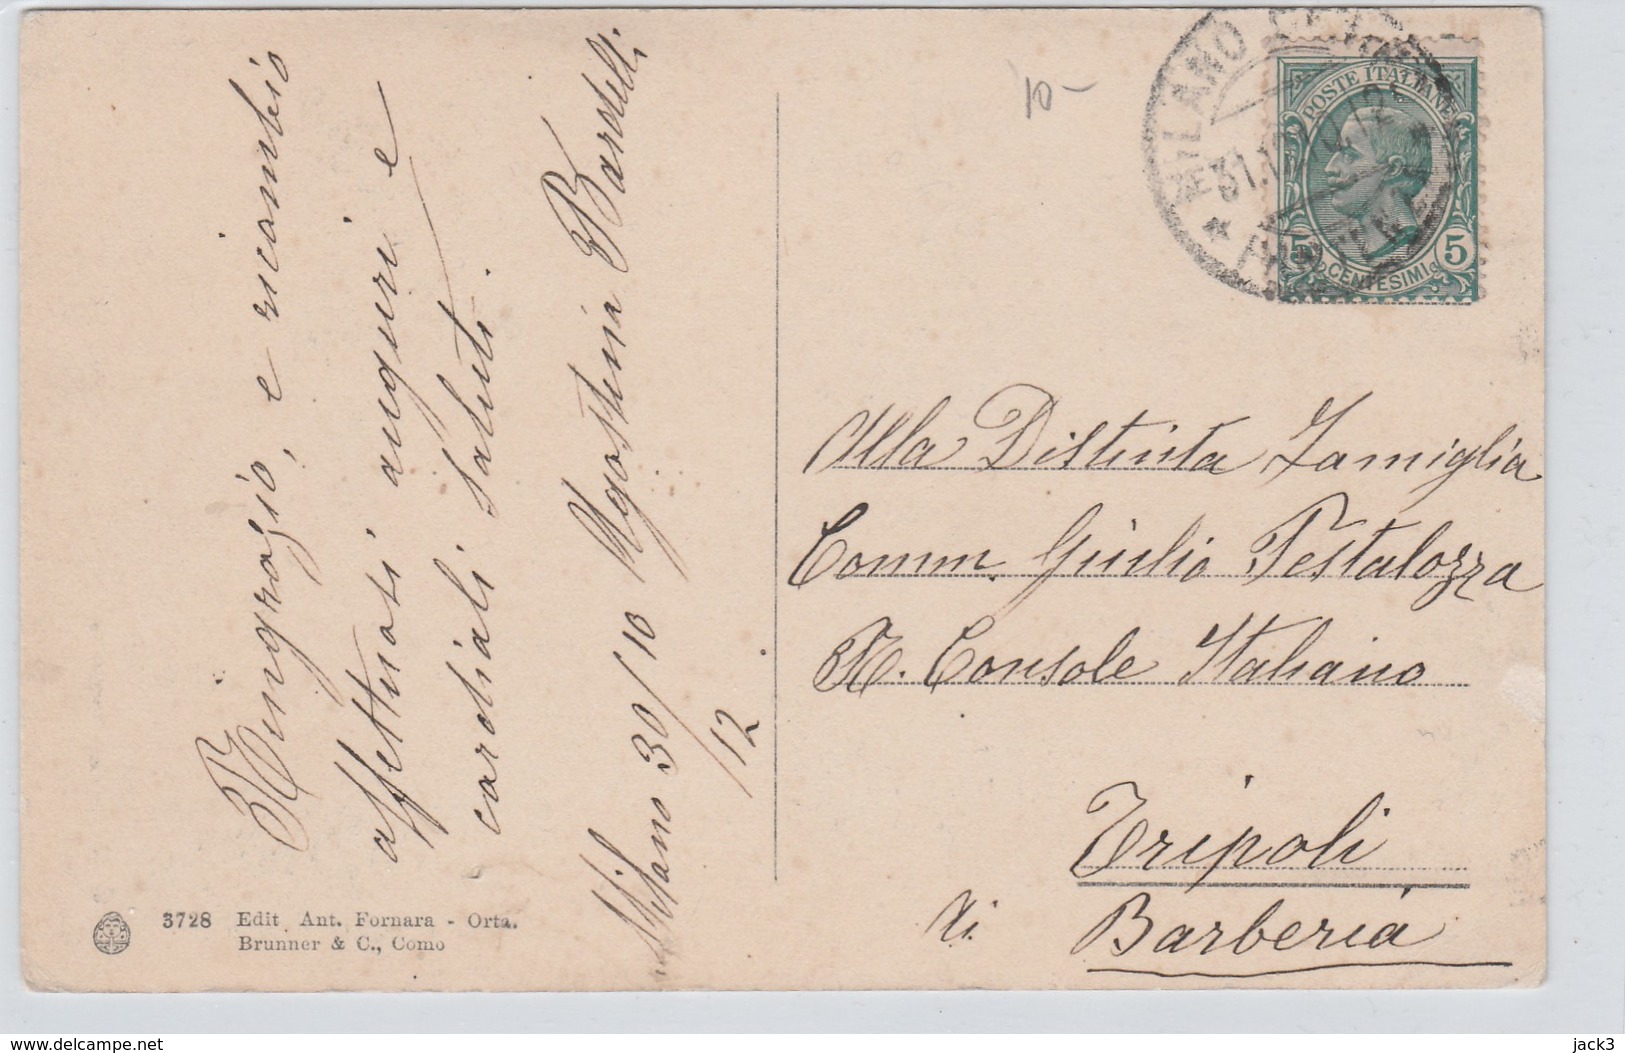 Ringrazio, e ricambio
affettuosi auguri e
cordiali saluti.
Agostina Bardelli
Milano 30/10
/12
10-
MILANO
31.10
POSTE ITALIANE
5 5
CENTESIMI
Alla Distinta Famiglia
Comm. Giulio Pestalozza
R. Console Italiano
Tripoli
di
Barberia
3728 Edit Ant. Fornara - Orta.
Brunner & C., Como
www.delcampe.net
jack3